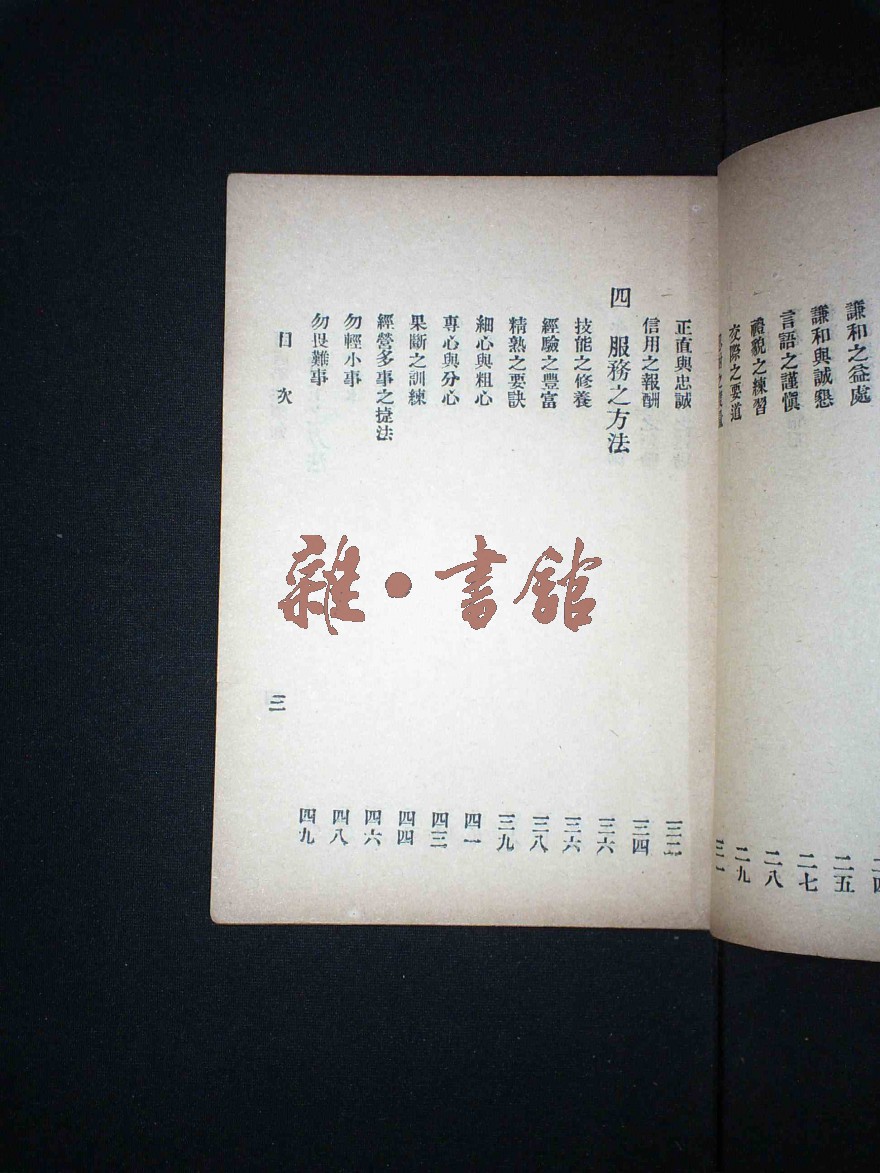 謙和之益處 二四
謙和與誠懇 二五
言語之謹慎 二七
禮貌之練習 二八
交際之要道 二九
三一
正直與忠誠 三二
信用之報酬 三四
四 服務之方法 三六
技能之修養 三六
經驗之豐富 三八
精熟之要訣 三九
細心與粗心 四一
專心與分心 四三
果斷之訓練 四四
經營多事之捷法 四六
勿輕小事 四八
勿畏難事 四九
目次 三
雜·書館